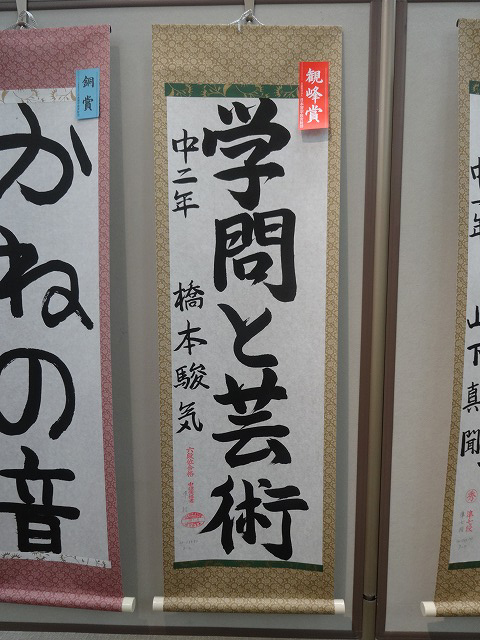 観峰賞
学問と芸術
中二年 橋本駿気
銅賞
かねの音
山下真聞